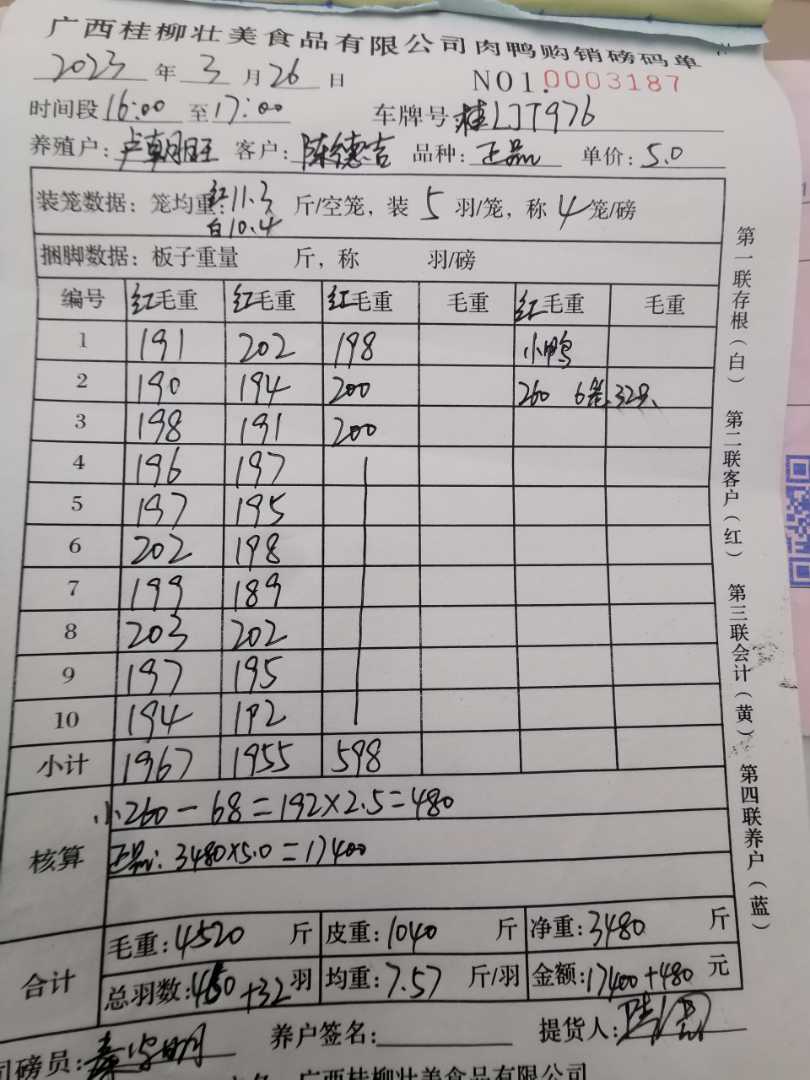 广西桂柳壮美食品有限公司肉鸭购销磅码单
2023年3月26日 NO1.0003187
时间段16:00至17:00 车牌号桂LJT976
养殖户:卢朝旺 客户:陈德吉 品种:正品 单价:5.0
装笼数据:笼均重:红11.3 白10.4 斤/空笼,装5羽/笼,称4笼/磅
捆脚数据:板子重量 斤,称 羽/磅
编号 红毛重 红毛重 红毛重 毛重 红毛重 毛重
1 191 202 198 小鸭
2 190 194 200 260 6笼 32只
3 198 191 200
4 196 197
5 197 195
6 202 198
7 199 189
8 203 202
9 197 195
10 194 192
小计 1967 1955 598
核算 小260-68=192×2.5=480
正品:3480×5.0=17400
合计 毛重:4520斤 皮重:1040斤 净重:3480斤
总羽数:460+32羽 均重:7.57斤/羽 金额:17400+480元
养户签名: 提货人:
司磅员:
广西桂柳壮美食品有限公司
第一联存根(白) 第二联客户(红) 第三联会计(黄) 第四联养户(蓝)